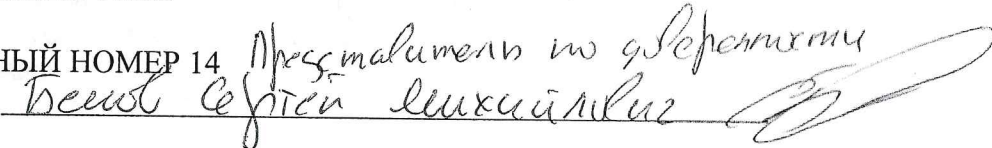 НЫЙ НОМЕР 14 Представитель по доверенности
Белов Сергей Михайлович